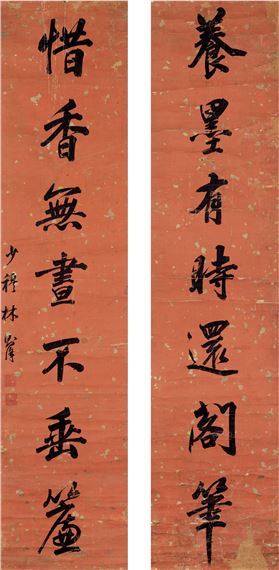 養墨有時還閣筆
惜香無晝不垂簾
少穆林則徐